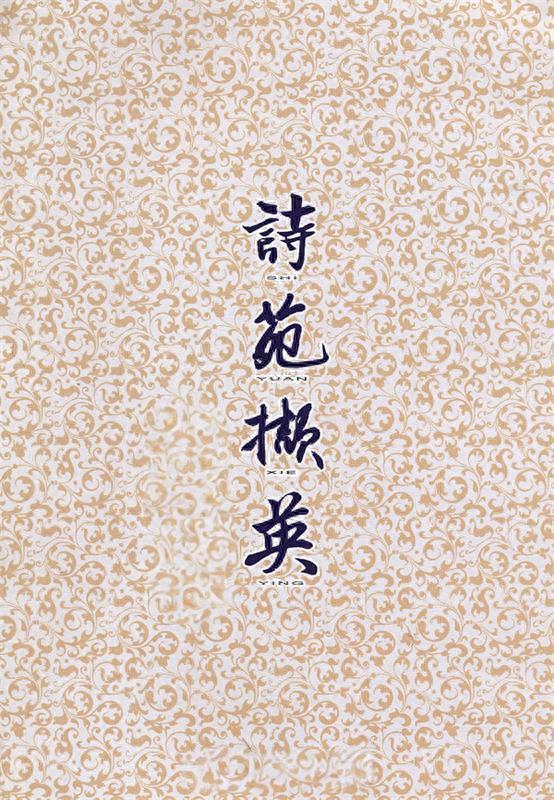 詩
SHI
苑
YUAN
擷
XIE
英
YING